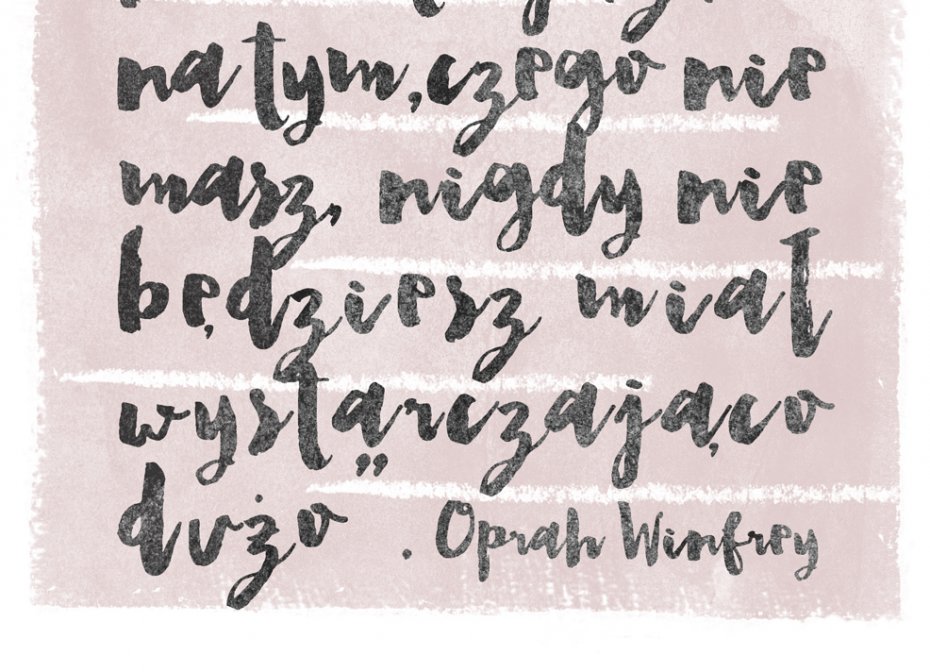 na tym, czego nie
masz, nigdy nie
będziesz miał
wystarczająco
dużo”. Oprah Winfrey